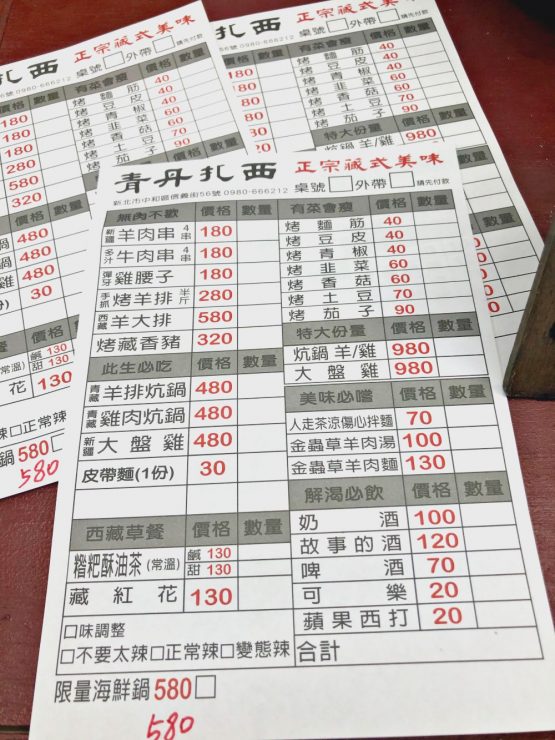 扎西
正宗藏式美味
6號 0980-666212 桌號□外帶□ 請先付款
價格 數量 有菜會瘦 價格 數量
180 烤麵筋 40
180 烤豆皮 40
180 烤青椒 40
280 烤韭菜 60
580 烤香菇 60
320 烤土豆 70
烤茄子 90
480
480
480
(份) 30
餐 價格
(常溫) 鹹 130
甜 130
花 130
辣□正常辣
鍋 580□
580
扎西
正宗藏式美味
56號 0980-666212 桌號□外帶□ 請先付款
價格 數量 有菜會瘦 價格 數量
180 烤麵筋 40
180 烤豆皮 40
180 烤青椒 40
烤韭菜 60
烤香菇 60
烤土豆 70
烤茄子 90
特大份量 價格 數量
炕鍋羊/雞 980
青丹扎西
正宗藏式美味
新北市中和區信義街56號 0980-666212 桌號□外帶□ 請先付款
無肉不歡 價格 數量
新疆羊肉串4串 180
多汁牛肉串4串 180
彈牙雞腰子 180
手抓烤羊排半斤 280
西藏羊大排 580
烤藏香豬 320
此生必吃 價格 數量
青藏羊排炕鍋 480
青藏雞肉炕鍋 480
新疆大盤雞 480
皮帶麵(1份) 30
西藏草餐 價格 數量
糌粑酥油茶(常溫) 鹹 130
甜 130
藏紅花 130
□味調整
□不要太辣□正常辣□變態辣
限量海鮮鍋 580□
580
有菜會瘦 價格 數量
烤麵筋 40
烤豆皮 40
烤青椒 40
烤韭菜 60
烤香菇 60
烤土豆 70
烤茄子 90
特大份量 價格 數量
炕鍋羊/雞 980
大盤雞 980
美味必嚐 價格 數量
人走茶涼傷心拌麵 70
金蟲草羊肉湯 100
金蟲草羊肉麵 130
解渴必飲 價格 數量
奶酒 100
故事的酒 120
啤酒 70
可樂 20
蘋果西打 20
合計